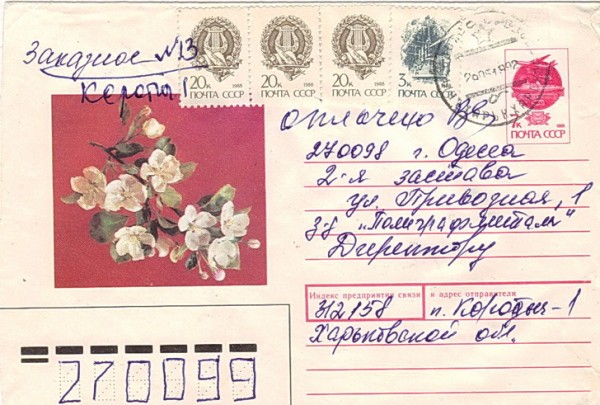 Заказное №13
20к 1988
ПОЧТА СССР
20к 1988
ПОЧТА СССР
20к 1988
ПОЧТА СССР
3к 1988
ПОЧТА СССР
7к 1988
ПОЧТА СССР
оплачено
270098 г. Одесса
2-я застава
ул. Привозная, 1
З-д "Полиграфметалл"
Директору
Индекс предприятия связи и адрес отправителя
312158 п. Коротыч-1
Харьковской обл.
270099